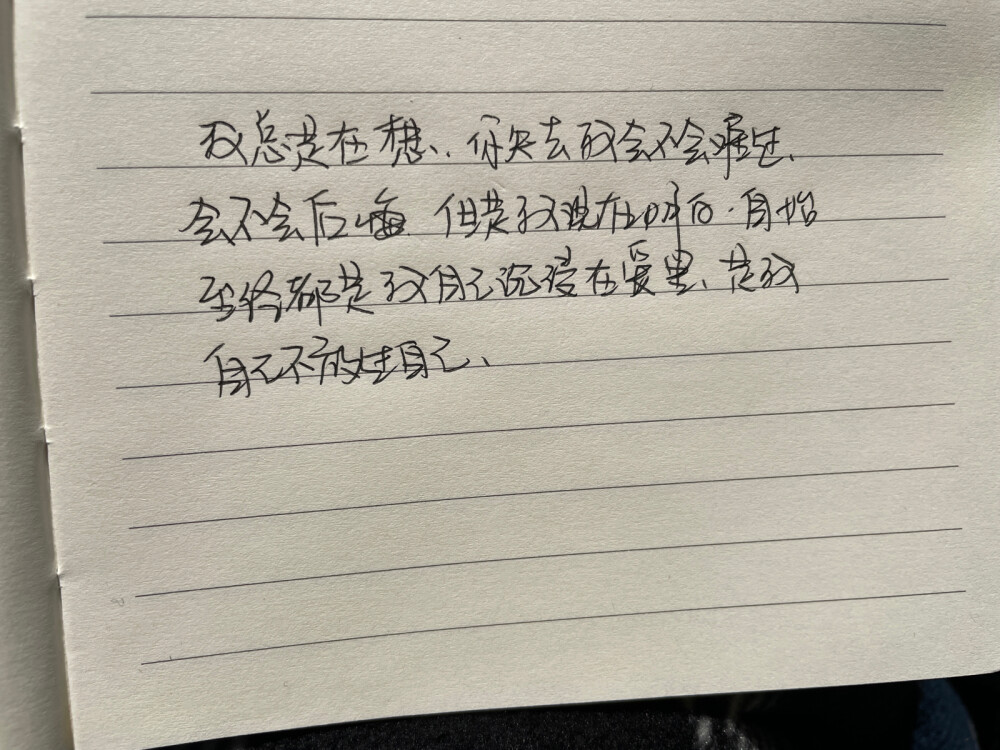 我总是在想、你失去我会不会难过、
会不会后悔 但是我现在明白.自始
至终都是我自己沉浸在爱里、是我
自己不放过自己、